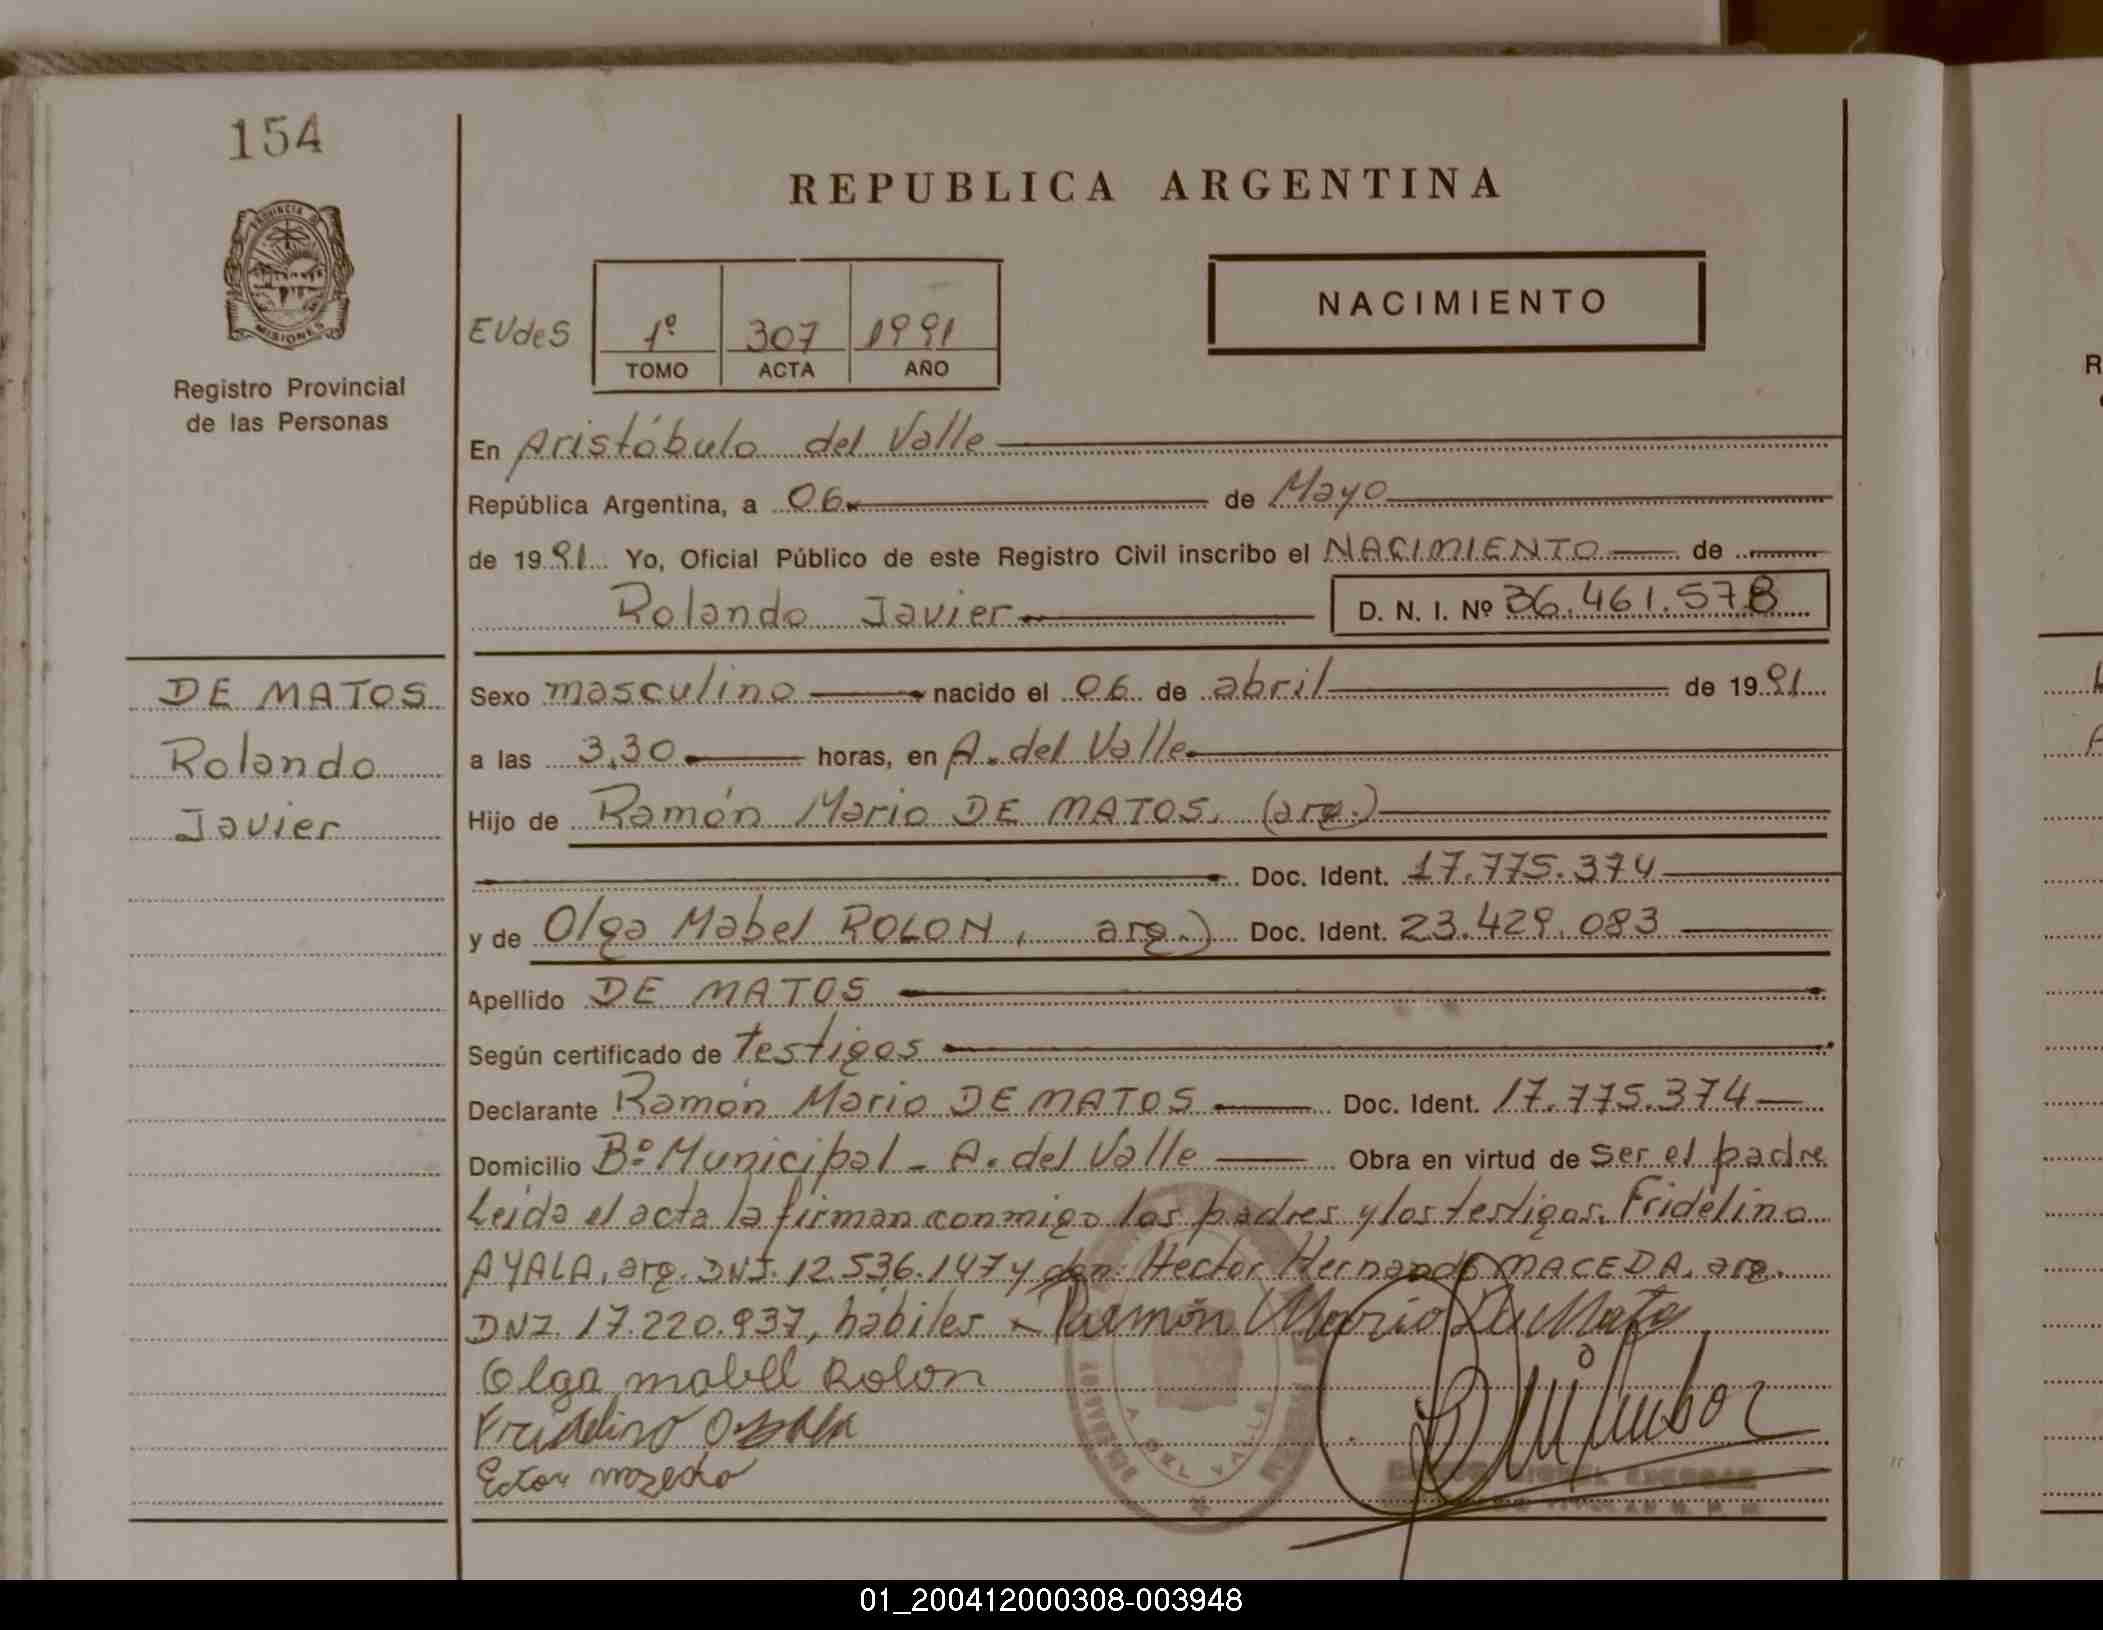 154
PROVINCIA D
MISIONES
Registro Provincial
de las Personas
DE MATOS
Rolando
Javier
REPUBLICA ARGENTINA
EVdeS
1º 307 1991
TOMO ACTA AÑO
NACIMIENTO
En Aristóbulo del Valle
República Argentina, a 06 de Mayo
de 1991 Yo, Oficial Público de este Registro Civil inscribo el NACIMIENTO de
Rolando Javier D. N. I. Nº 36.461.578
Sexo masculino nacido el 06 de abril de 1991
a las 3,30 horas, en A. del Valle
Hijo de Ramón Mario DE MATOS, (arg.)
Doc. Ident. 17.775.374
y de Olga Mabel ROLON, arg.) Doc. Ident. 23.429.083
Apellido DE MATOS
Según certificado de testigos
Declarante Ramón Mario DE MATOS Doc. Ident. 17.775.374
Domicilio Bº Municipal - A. del Valle Obra en virtud de ser el padre
Leída el acta la firman conmigo los padres y los testigos. Fridelino
AYALA, arg. DNI. 12.536.147 y don: Hector Hernando MACEDA, arg.
DNI. 17.220.937, hábiles - Ramón Mario De Mato
Olga mabell Rolon
Fridelino
Ector
A. DEL VALLE
01_200412000308-003948